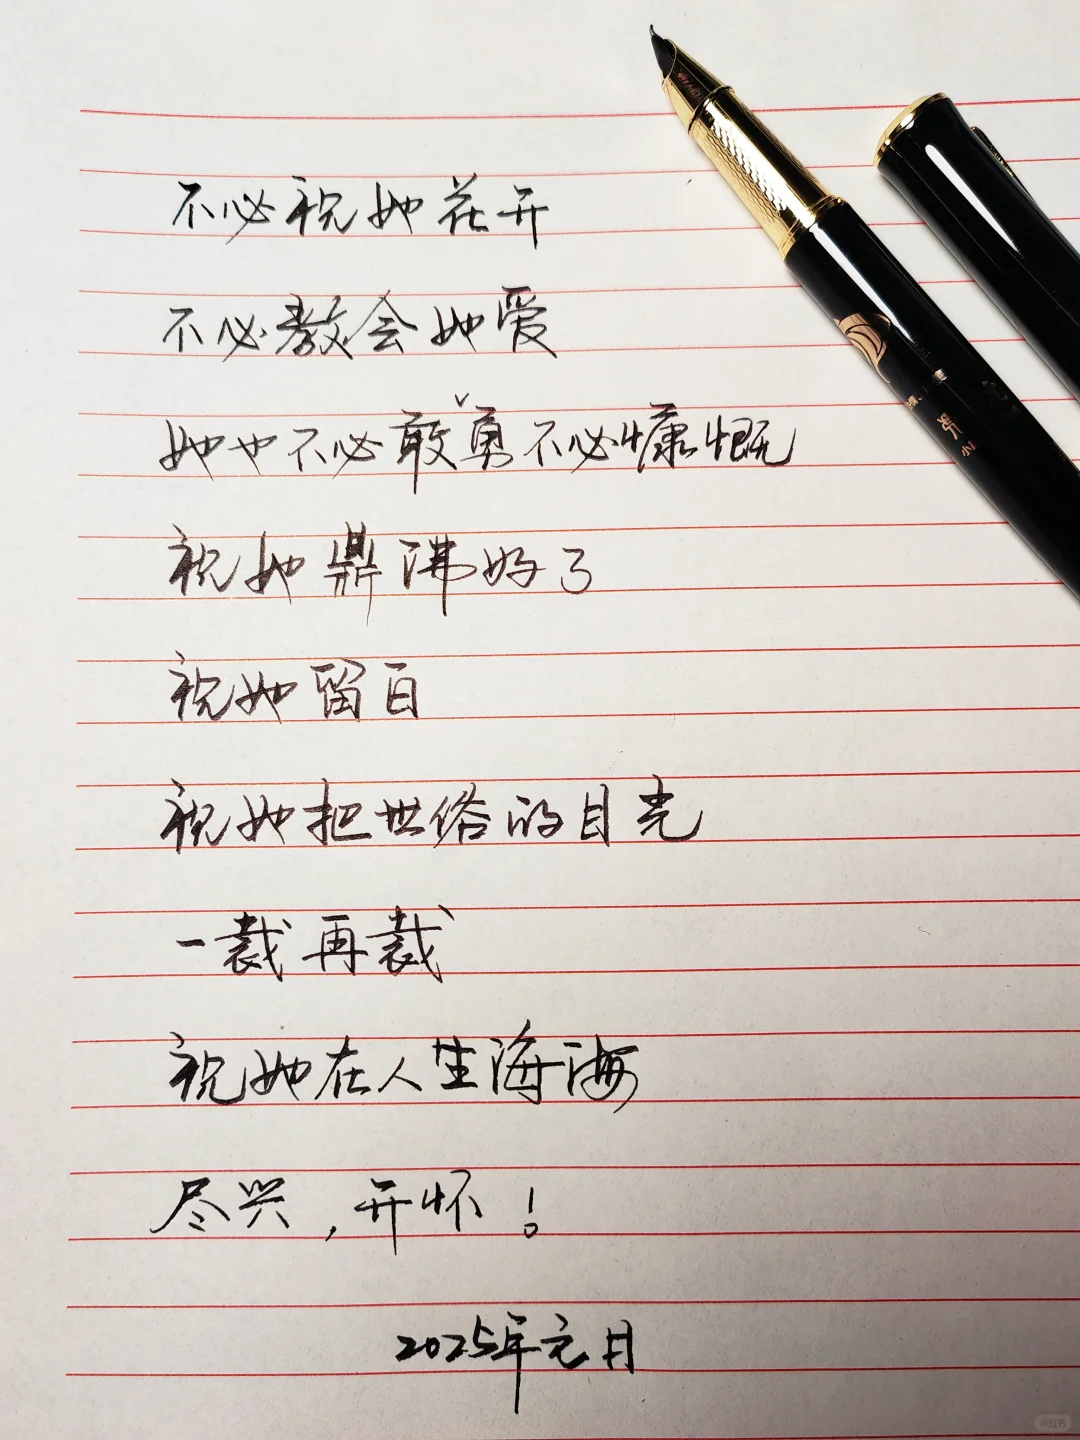 不必祝她花开
不必教会她爱
她也不必敢勇不必慷慨
祝她鼎沸好了
祝她留白
祝她把世俗的目光
一裁再裁
祝她在人生海海
尽兴，开怀！
2025年元月
小红书